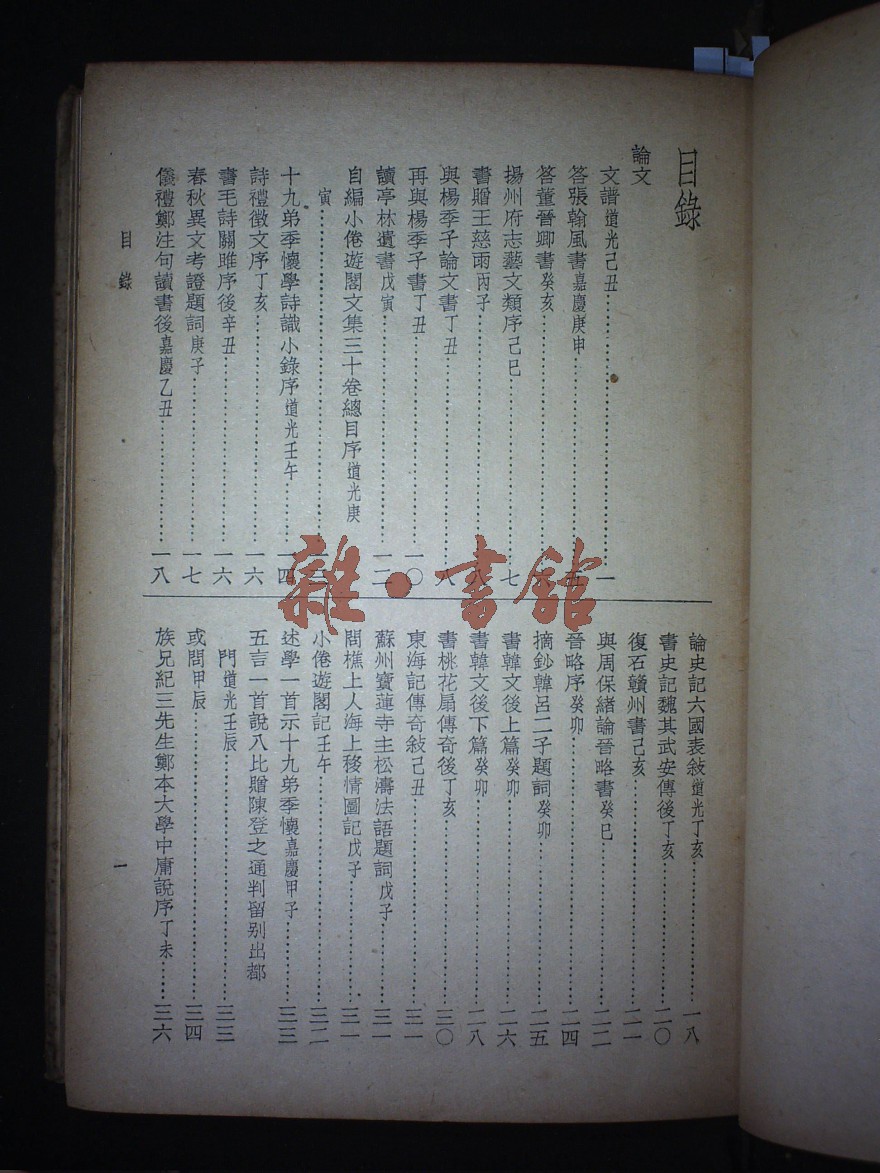 目錄
論文
文譜道光己丑……一
答張翰風書嘉慶庚申……五
答董晉卿書癸亥……六
揚州府志藝文類序己巳……七
書贈王慈雨丙子……八
與楊季子論文書丁丑……八
再與楊季子書丁丑……一〇
讀亭林遺書戊寅……一二
自編小倦遊閣文集三十卷總目序道光庚
寅……
十九弟季懷學詩識小錄序道光壬午……一四
詩禮徵文序丁亥……一六
書毛詩關雎序後辛丑……一六
春秋異文考證題詞庚子……一七
儀禮鄭注句讀書後嘉慶乙丑……一八
論史記六國表敍道光丁亥……一八
書史記魏其武安傳後丁亥……二〇
復石贛州書己亥……二一
與周保緒論晉略書癸巳……二二
晉略序癸卯……二四
摘鈔韓呂二子題詞癸卯……二五
書韓文後上篇癸卯……二六
書韓文後下篇癸卯……二八
書桃花扇傳奇後丁亥……三〇
東海記傳奇敍己丑……三一
蘇州寶蓮寺主松濤法語題詞戊子……三一
問樵上人海上移情圖記戊子……三一
小倦遊閣記壬午……三二
述學一首示十九弟季懷嘉慶甲子……三三
五言一首說八比贈陳登之通判留別出都
門道光壬辰……三三
或問甲辰……三四
族兄紀三先生鄭本大學中庸說序丁未……三六
目錄
一
雜·書館